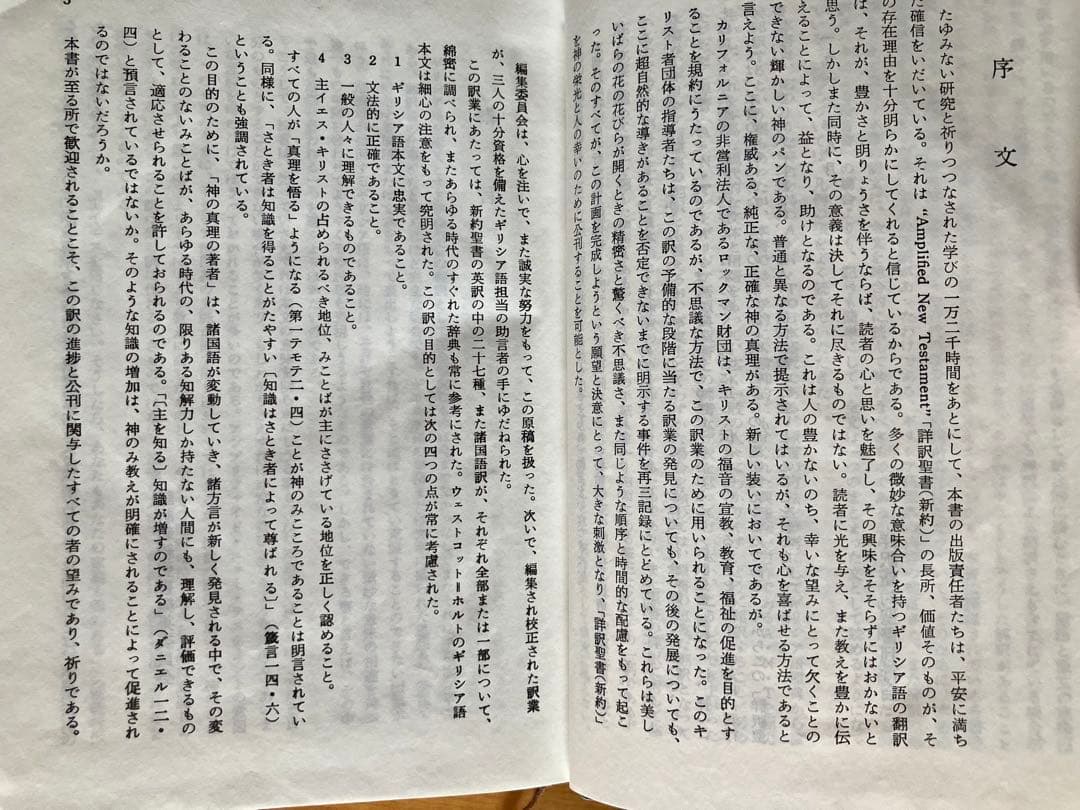 序文
たゆみない研究と祈りつつなされた学びの一万二千時間をあとにして、本書の出版責任者たちは、平安に満ち
た確信をいだいている。それは “Amplified New Testament”「詳訳聖書(新約)」の長所、価値そのものが、そ
の存在理由を十分明らかにしてくれると信じているからである。多くの微妙な意味合いを持つギリシア語の翻訳
は、それが、豊かさと明りょうさを伴うならば、読者の心と思いを魅了し、その興味をそそらずにはおかないと
思う。しかしまた同時に、その意義は決してそれに尽きるものではない。読者に光を与え、また教えを豊かに伝
えることによって、益となり、助けとなるのである。これは人の豊かないのち、幸いな望みにとって欠くことの
できない輝かしい神のパンである。普通と異なる方法で提示されてはいるが、それも心を喜ばせる方法であると
言えよう。ここに、権威ある、純正な、正確な神の真理がある。新しい装いにおいてであるが。
カリフォルニアの非営利法人であるロックマン財団は、キリストの福音の宣教、教育、福祉の促進を目的とす
ることを規約にうたっているのであるが、不思議な方法で、この訳業のために用いられることになった。このキ
リスト者団体の指導者たちは、この訳の予備的な段階に当たる訳業の発見についても、その後の発展についても、
ここに超自然的な導きがあることを否定できないまでに明示する事件を再三記録にとどめている。これらは美し
いばらの花の花びらが開くときの精密さと驚くべき不思議さ、また同じような順序と時間的な配慮をもって起こ
った。そのすべてが、この計画を完成しようという願望と決意にとって、大きな刺激となり、「詳訳聖書(新約)」
を神の栄光と人の幸いのために公刊することを可能とした。
編集委員会は、心を注いで、また誠実な努力をもって、この原稿を扱った。次いで、編集され校正された訳業
が、三人の十分資格を備えたギリシア語担当の助言者の手にゆだねられた。
この訳業にあたっては、新約聖書の英訳の中の二十七種、また諸国語訳が、それぞれ全部または一部について、
綿密に調べられ、またあらゆる時代のすぐれた辞典も常に参考にされた。ウェストコット＝ホルトのギリシア語
本文は細心の注意をもって究明された。この訳の目的としては次の四つの点が常に考慮された。
1 ギリシア語本文に忠実であること。
2 文法的に正確であること。
3 一般の人々に理解できるものであること。
4 主イエス・キリストの占められるべき地位、みことばが主にささげている地位を正しく認めること。
すべての人が「真理を悟る」ようになる(第一テモテ二・四)ことが神のみこころであることは明言されてい
る。同様に、「さとき者は知識を得ることがたやすい〔知識はさとき者によって尊ばれる〕」(箴言一四・六)
ということも強調されている。
この目的のために、「神の真理の著者」は、諸国語が変動していき、諸方言が新しく発見される中で、その変
わることのないみことばが、あらゆる時代の、限りある知解力しか持たない人間にも、理解し、評価できるもの
として、適応させられることを許しておられるのである。「〔主を知る〕知識が増すのである」(ダニエル一二・
四)と預言されているではないか。そのような知識の増加は、神のみ教えが明確にされることによって促進され
るのではないだろうか。
本書が至る所で歓迎されることこそ、この訳の進捗と公刊に関与したすべての者の望みであり、祈りである。
3